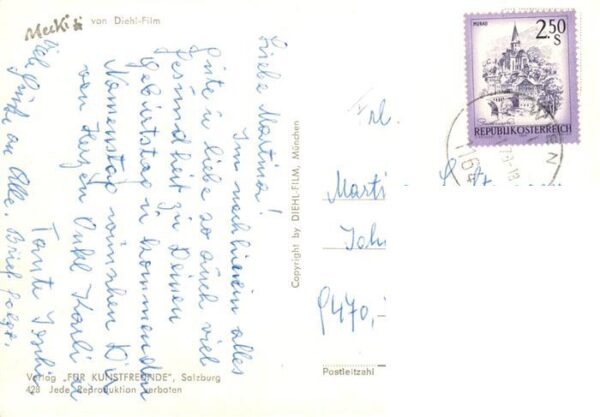 Mecki von Diehl-Film
Liebe Martina!
Im nachhinein alles
Gute u. liebe so auch viel
Gesundheit zu Deinen
Geburtstag u. kommenden
Namenstag wünschen Dir
von Herzen Onkl Karli u
Tante
Viele Grüße an Alle, Brief folgt.
Verlag „FÜR KUNSTFREUNDE", Salzburg
428 Jede Reproduktion verboten
Copyright by DIEHL-FILM, München
MURAU
2.50
S
REPUBLIK ÖSTERREICH
Frl.
Marti
Joh
9470,-
Postleitzahl